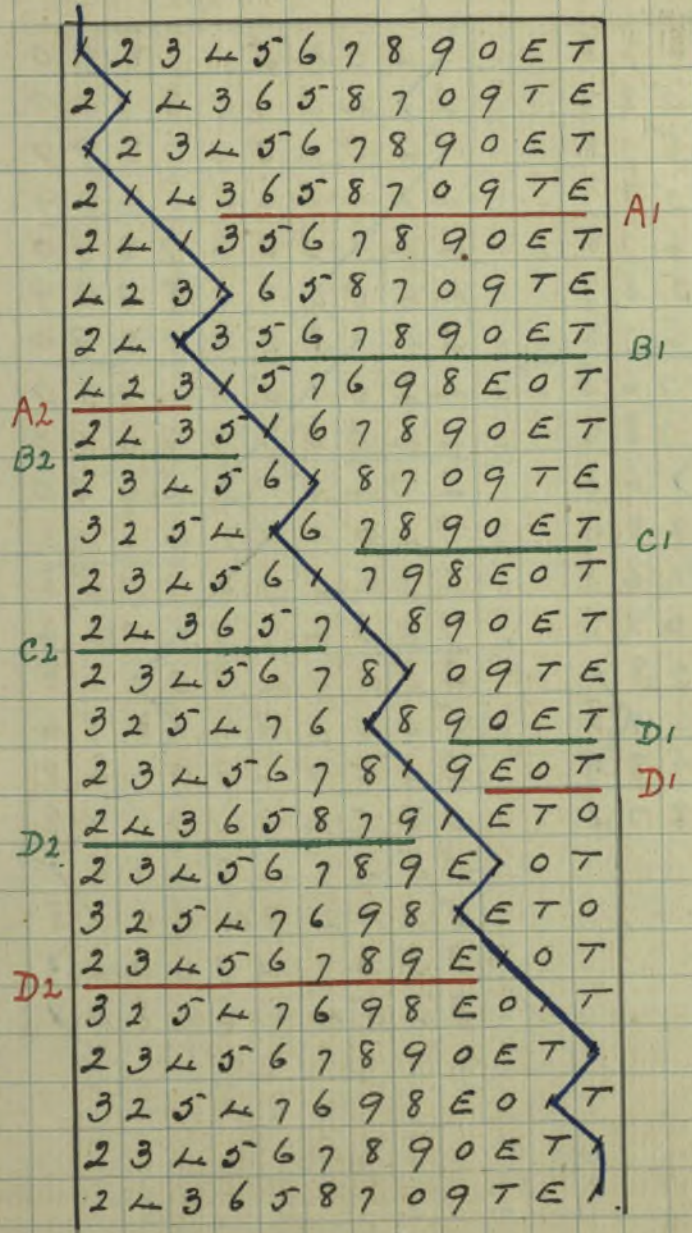 1 2 3 4 5 6 7 8 9 0 E T
2 1 4 3 6 5 8 7 0 9 T E
1 2 3 4 5 6 7 8 9 0 E T
2 1 4 3 6 5 8 7 0 9 T E A1
2 4 1 3 5 6 7 8 9 0 E T
4 2 3 1 6 5 8 7 0 9 T E
2 4 1 3 5 6 7 8 9 0 E T B1
A2 4 2 3 1 5 7 6 9 8 E 0 T
B2 2 4 3 5 1 6 7 8 9 0 E T
2 3 4 5 6 1 8 7 0 9 T E
3 2 5 4 1 6 7 8 9 0 E T C1
2 3 4 5 6 1 7 9 8 E 0 T
C2 2 4 3 6 5 7 1 8 9 0 E T
2 3 4 5 6 7 8 1 0 9 T E
3 2 5 4 7 6 1 8 9 0 E T D1
2 3 4 5 6 7 8 1 9 E 0 T D1
D2 2 4 3 6 5 8 7 9 1 E T 0
2 3 4 5 6 7 8 9 E 1 0 T
3 2 5 4 7 6 9 8 1 E T 0
D2 2 3 4 5 6 7 8 9 E 1 0 T
3 2 5 4 7 6 9 8 E 0 1 T
2 3 4 5 6 7 8 9 0 E T 1
3 2 5 4 7 6 9 8 E 0 1 T
2 3 4 5 6 7 8 9 0 E T 1
2 4 3 6 5 8 7 0 9 T E 1